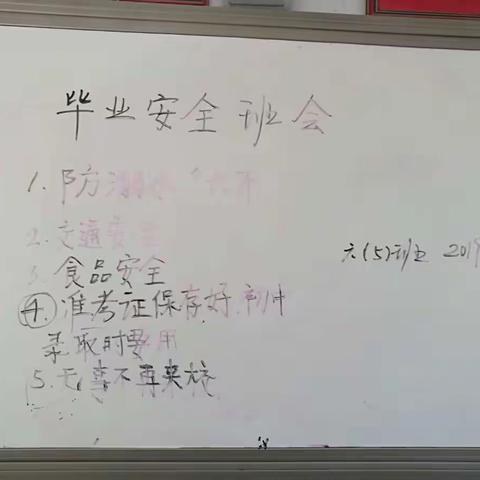 毕业安全班会
1. 防溺水“六不
2. 交通安全
3. 食品安全
六(5)班 2019
④.准考证保存好.初中
录取时要用
5. 无事不再来校